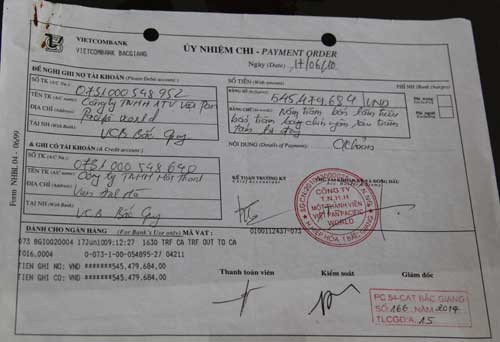 VIETCOMBANK
VIETCOMBANK BACGIANG
ỦY NHIỆM CHI - PAYMENT ORDER
Ngày (Date) 17/06/10
ĐỀ NGHỊ GHI NỢ TÀI KHOẢN (Please Debit account)
SỐ TK (A/C No) 0731000548952
TÊN TK (A/C name) Công ty TNHH MTV Việt Pan
ĐỊA CHỈ (Address) Pacific World
TẠI NH (With Bank) VCB Bắc Giang
SỐ TIỀN (With amount)
BẰNG SỐ 545.479.684 VND
BẰNG CHỮ Năm trăm bốn lăm triệu
bốn trăm bảy chín nghìn sáu trăm
tám tư đồng
PHÍ NH (Bank Charges)
Phí trong
Phí ngoài
NỘI DUNG (Details of Payment)
& GHI CÓ TÀI KHOẢN (& Credit account)
SỐ TK (A/C No)
TÊN TK (A/C name) Công ty TNHH Một Thành
ĐỊA CHỈ (Address)
TẠI NH (With Bank) VCB Bắc Giang
KẾ TOÁN TRƯỞNG KÝ
CHỦ TÀI KHOẢN KÝ VÀ ĐÓNG DẤU
CÔNG TY
T.N.H.H
MỘT THÀNH VIÊN
VIỆT PAN PACIFIC
WORLD
Form NHBL 04 - 06/99
DÀNH CHO NGÂN HÀNG (For Bank's Use only) MÃ VAT: 0100112437-073
073 BGI0020004 17Jun2009:12:27 1630 TRF CA TRF OUT TO CA
T016.0004 0-073-1-00-054895-2/ 04211
TIEN GHI NO: VND *******545.479,684.00
TIEN GHI CO: VND *******545.479,684.00
Thanh toán viên
Kiểm soát
Giám đốc
PC 54-CAT BẮC GIANG
SỐ: 166 NĂM 2014
TLCGĐ:A. 15